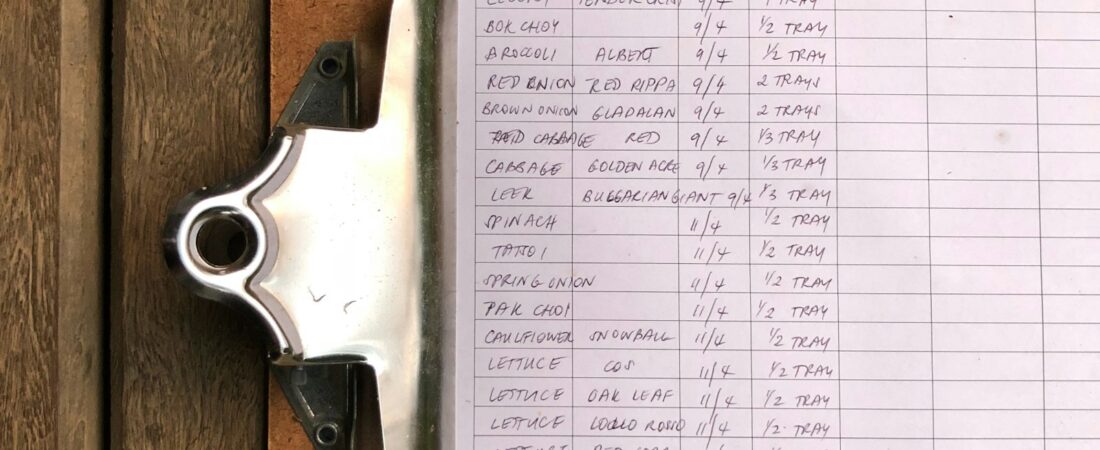 9/4 1 TRAY
BOK CHOY 9/4 1/2 TRAY
BROCCOLI ALBERT 9/4 1/2 TRAY
RED ONION RED RIPPA 9/4 2 TRAYS
BROWN ONION GLADALAN 9/4 2 TRAYS
RED CABBAGE RED 9/4 1/3 TRAY
CABBAGE GOLDEN ACRE 9/4 1/3 TRAY
LEEK BULGARIAN GIANT 9/4 1/3 TRAY
SPINACH 11/4 1/2 TRAY
TATSOI 11/4 1/2 TRAY
SPRING ONION 11/4 1/2 TRAY
PAK CHOI 11/4 1/2 TRAY
CAULIFLOWER SNOWBALL 11/4 1/2 TRAY
LETTUCE COS 11/4 1/2 TRAY
LETTUCE OAK LEAF 11/4 1/2 TRAY
LETTUCE LOLLO ROSSO 11/4 1/2 TRAY